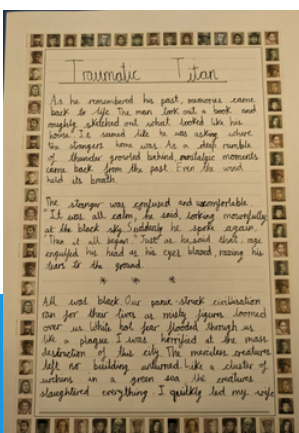 Traumatic Titan
As he remembered his past, memories came
back to life. The man took out a book and
roughly sketched out what looked like his
house. It seemed like he was asking where
the strangers home was. As a deep rumble
of thunder growled behind, nostalgic moments
came back from the past. Even the wind
held its breath.
The stranger was confused and uncomfortable.
"It was all calm, he said, looking mournfully
at the black sky. Suddenly he spoke again.
"Then it all began." Just as he said that, rage
engulfed his head as his eyes blazed, razing his
tears to the ground.
* * *
All was black. Our panic-struck civilisation
ran for their lives as misty figures loomed
over us. White hot fear flooded through us
like a plague. I was horrified at the mass
destruction of this city. The merciless creatures
left no building unturned. Like a cluster of
urchins in a green sea the creatures
slaughtered everything. I quickly led my wife